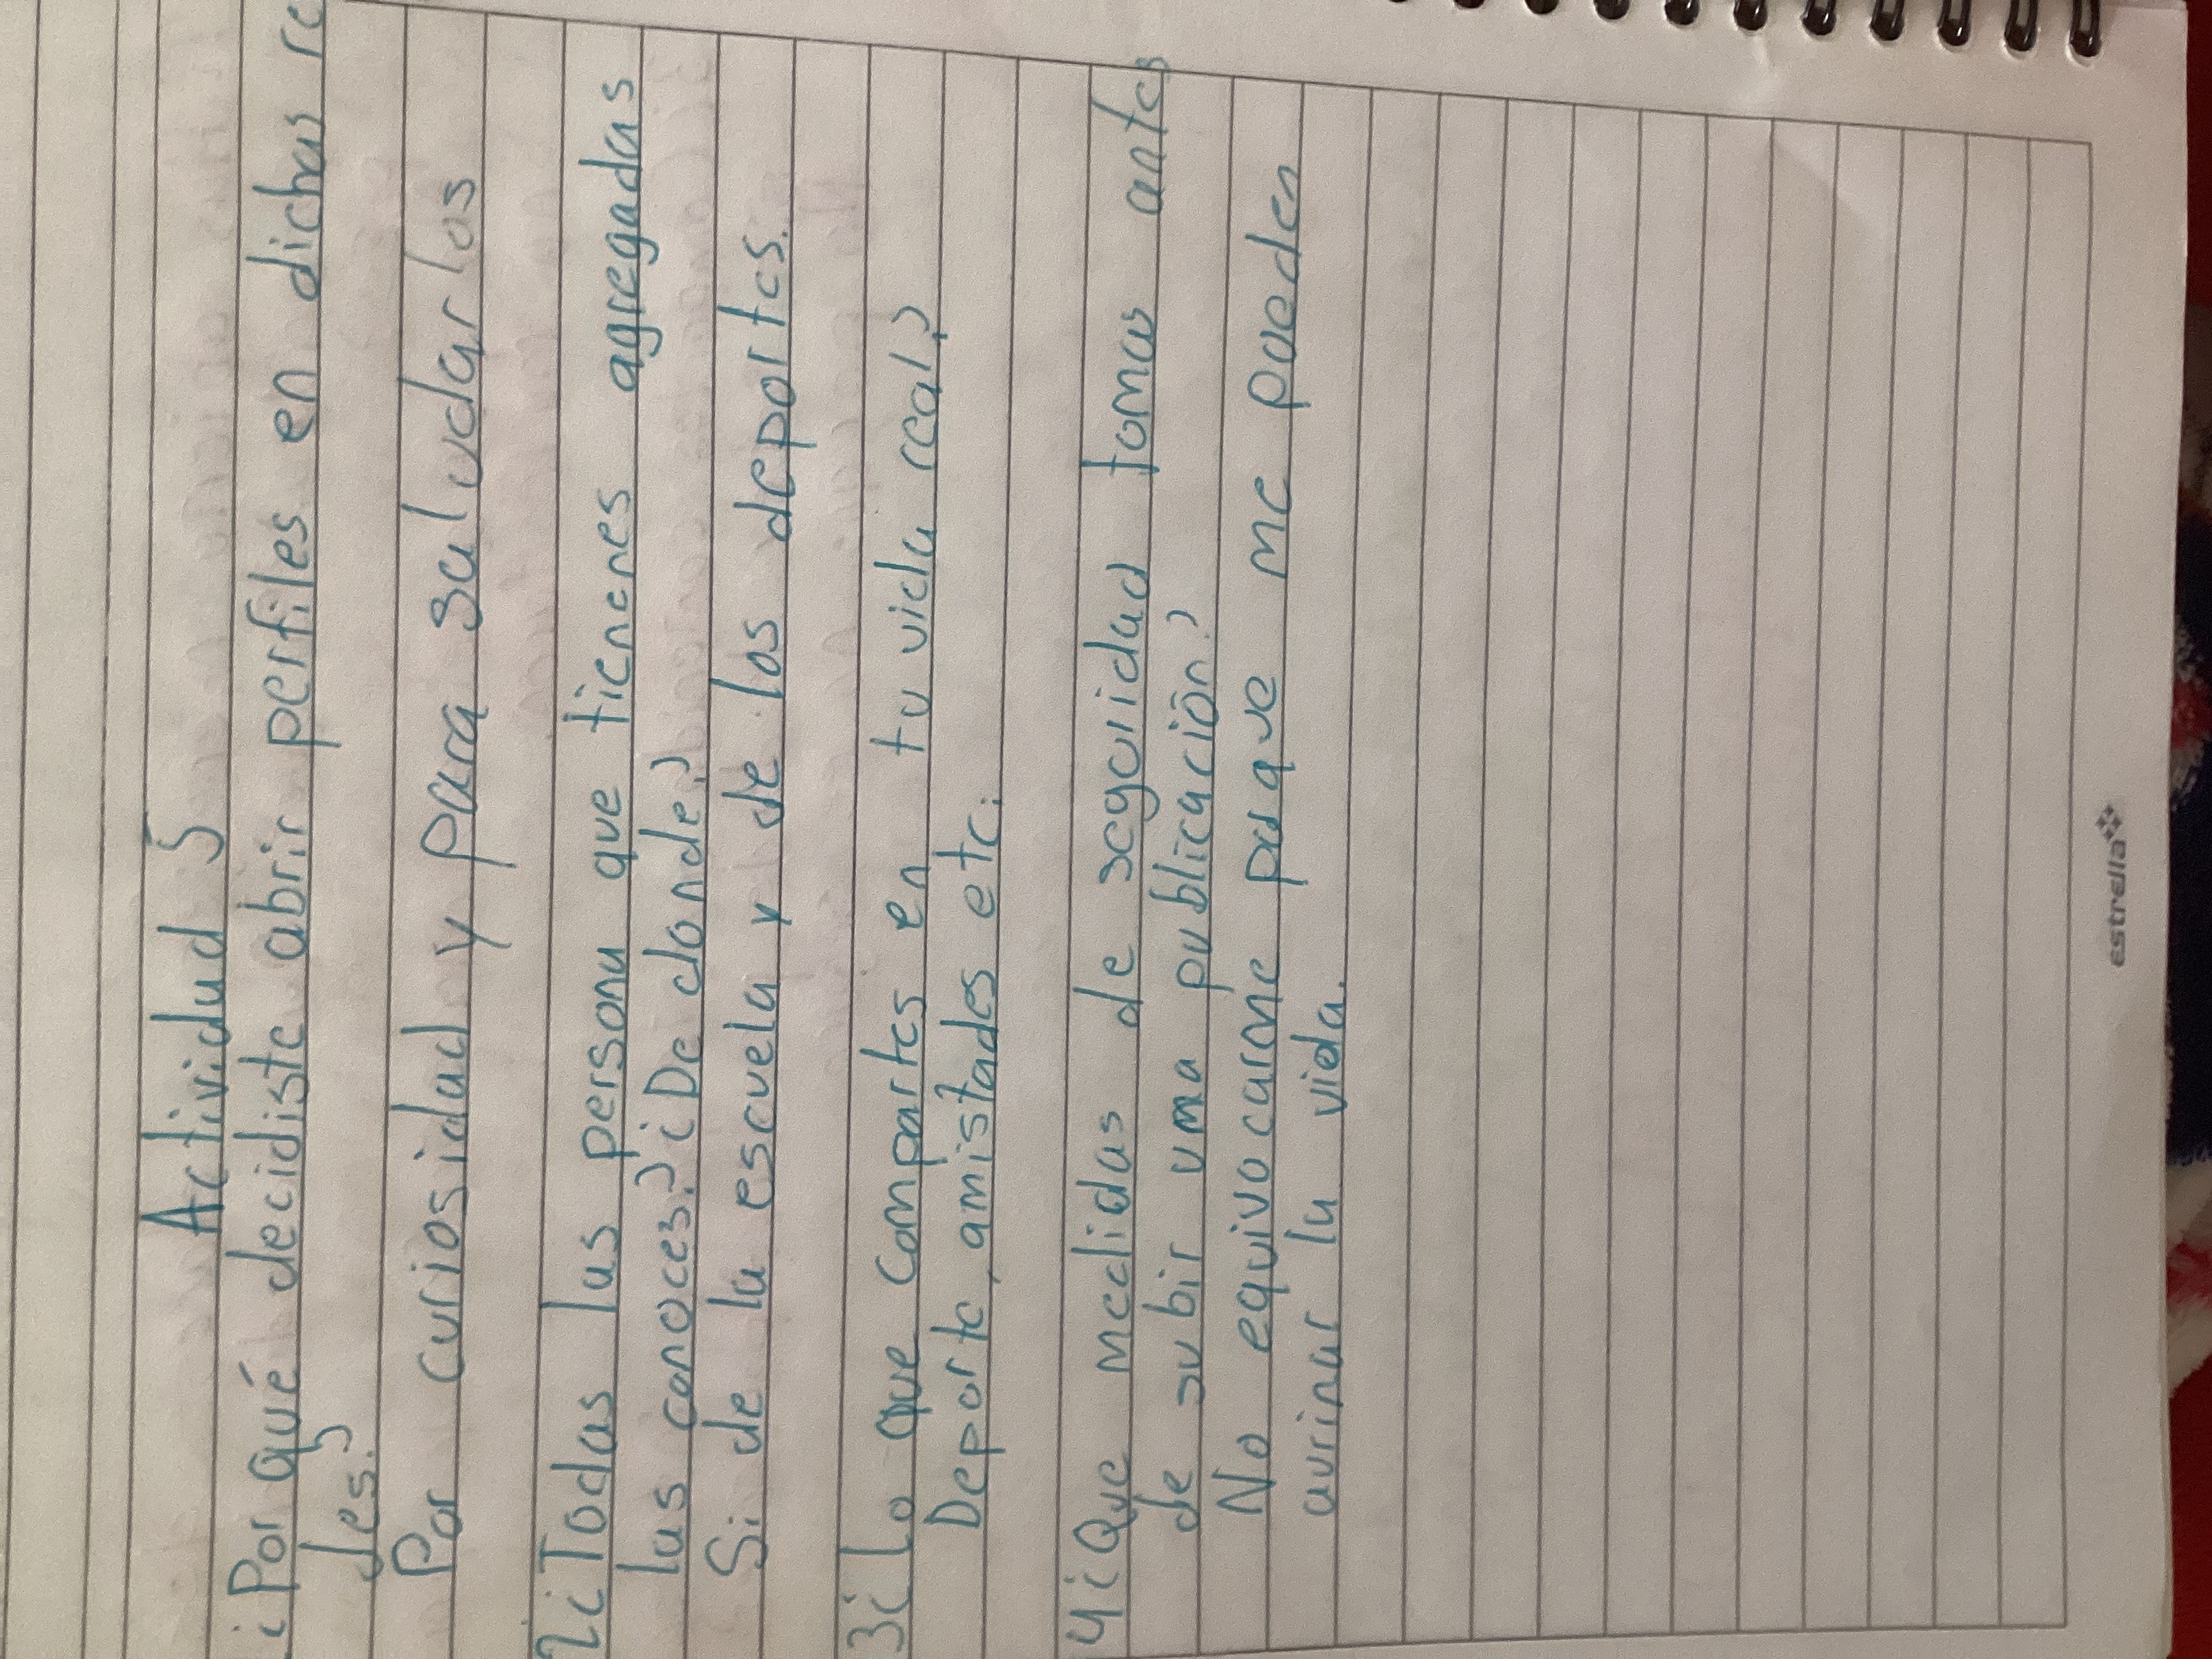 Actividad 5
¿Por qué decidiste abrir perfiles en dichas re
des?
Por curiosidad y para saludar los
2¿Todas las persona que tienenes agregadas
las conoces? ¿De donde?
Si de la escuela y de los deportes.
3¿Lo que compartes en tu vida real?
Deporte, amistades etc.
4¿Que medidas de seguridad tomas antes
de subir uma publicación?
No equivocarme paque me pueden
aurinar la vida.
estrella